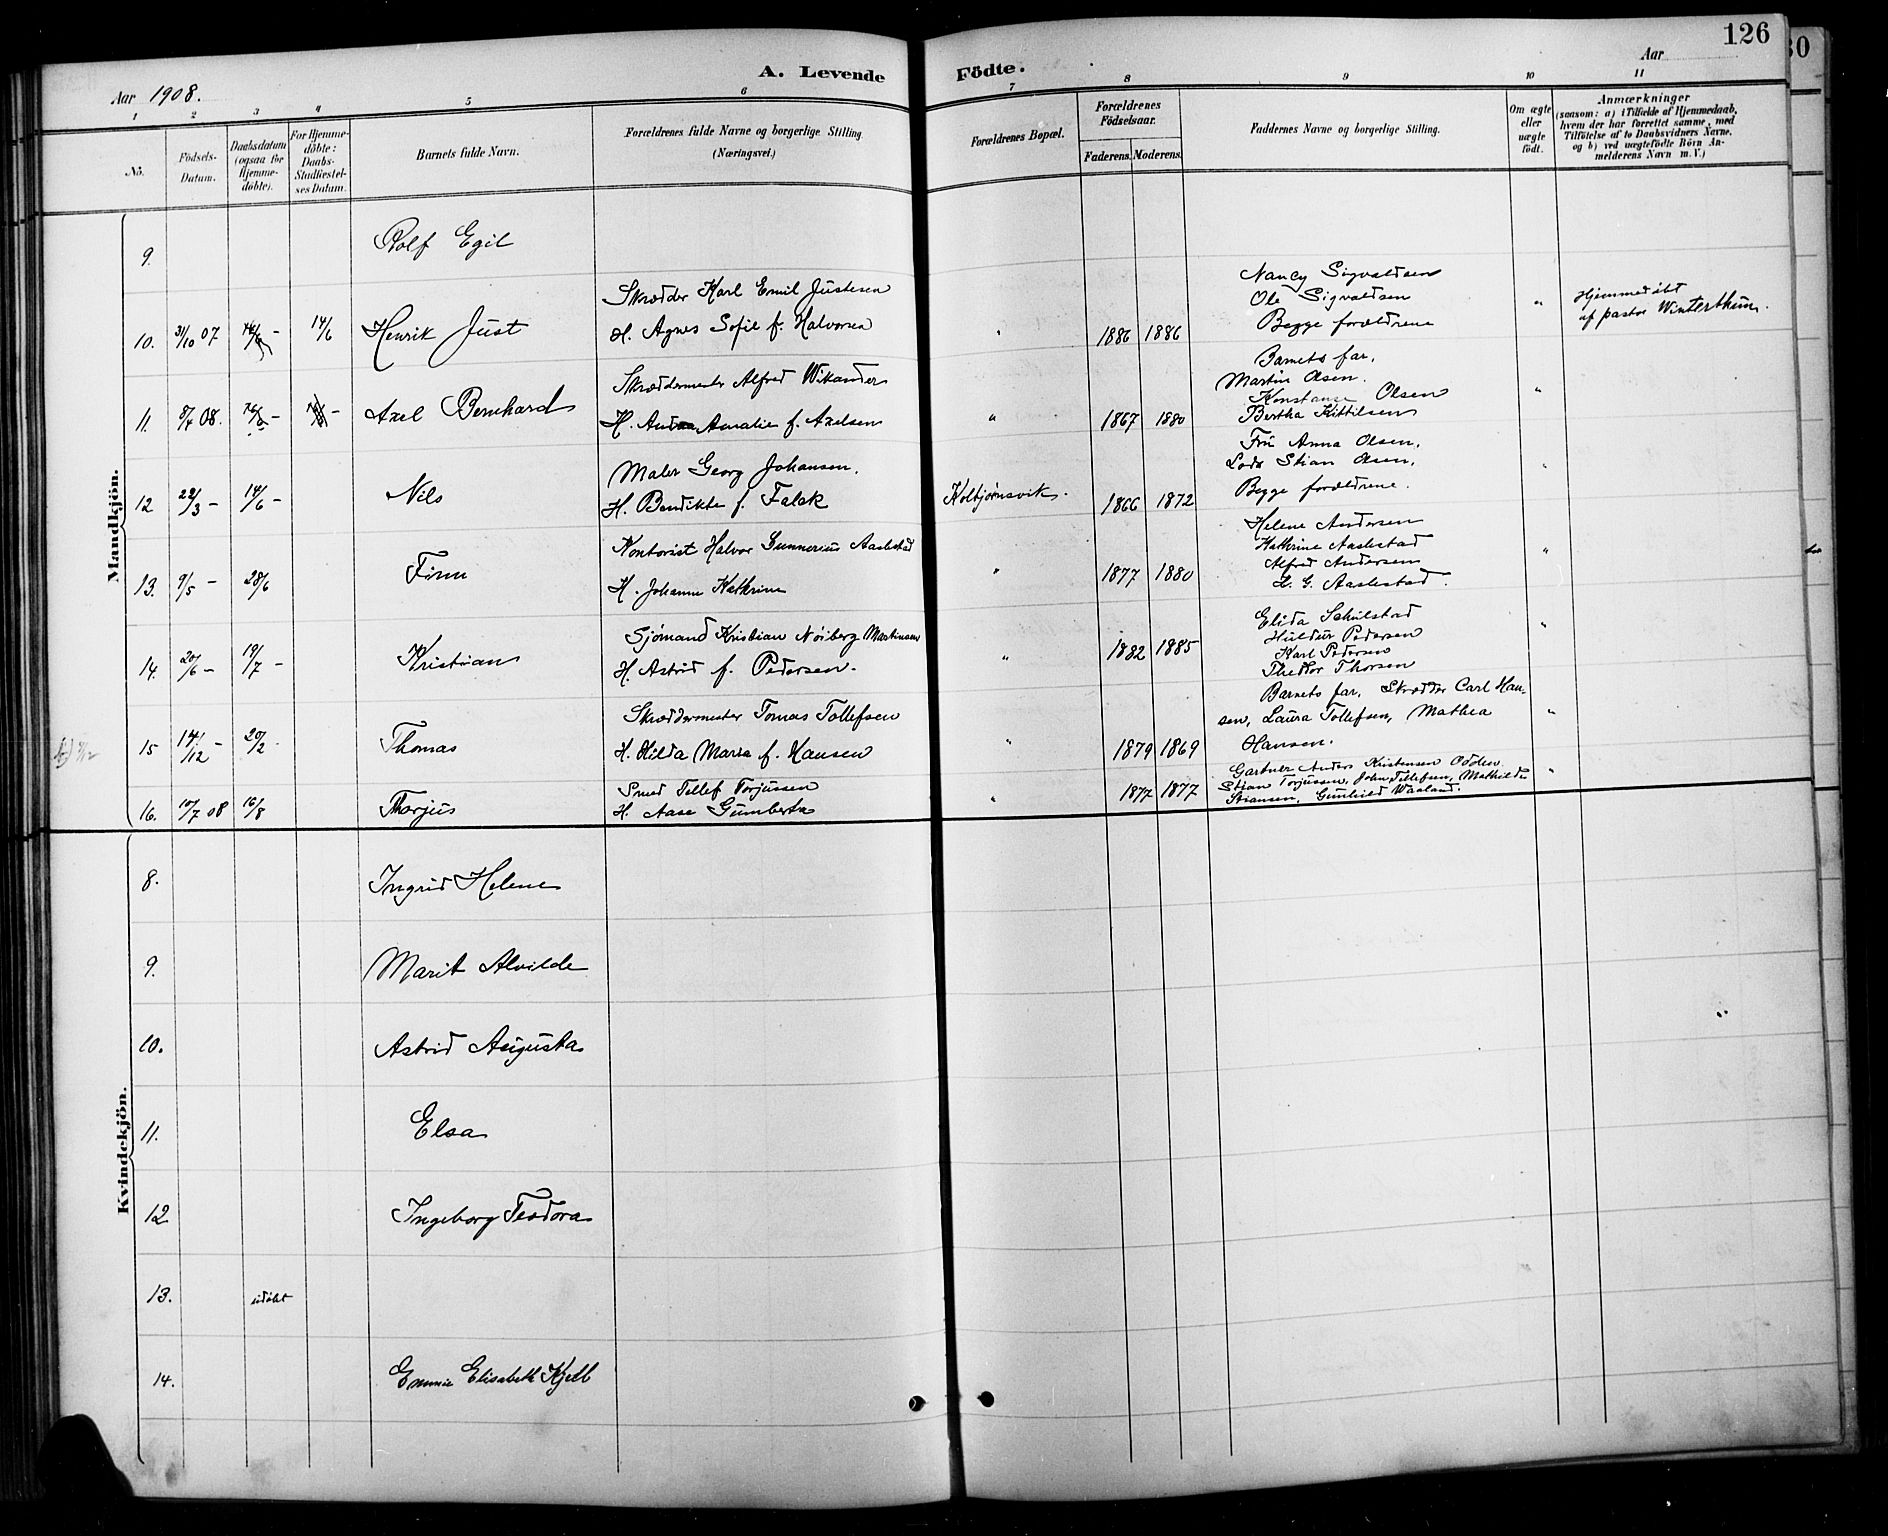 126
30
A. Levende Födte.
Aar 1908.
Aar
1 2 3 4 5 6 7 8 9 10 11
No.
Födsels-
Datum.
Daabsdatum
(ogsaa for
Hjemme-
döbte).
For Hjemme-
döbte:
Daabs-
Stadfæstel-
ses Datum.
Barnets fulde Navn.
Forældrenes fulde Navne og borgerlige Stilling
(Næringsvei.)
Forældrenes Bopæl.
Forældrenes
Födselsaar.
Faderens. Moderens.
Faddernes Navne og borgerlige Stilling.
Om ægte
eller
uægte
födt.
Anmærkninger
(saasom: a) i Tilfælde af Hjemmedaab,
hvem der har forrettet samme, med
Tilföielse af to Daabsvidners Navne,
og b) ved uægtefödte Börn An-
melderens Navn m. V.)
Mandkjön.
9. Rolf Egil
10. 31/10 07 14/6 - 14/6 Henrik Just
Skrædder Karl Emil Justesen
H. Agnes Sofie f. Halvorsen
" 1886 1886
Nancy Sigvaldsen
Ole Sigvaldsen
Begge forældrene
"
Hjemmedöbt
af pastor Winterthun.
11. 8/4 08. - - Axel Bernhard
Skræddermester Alfred Wikander
H. Amalie f. Axelsen
" 1867 1880
Barnets far,
Martin Olsen.
Konstanse Olsen
Bertha Kittilsen
"
12 22/3 - 14/6 - Nils
Maler Georg Johansen.
H. Bendikte f. Falck
Kolbjørnsvik. 1866 1872
Fru Anna Olsen,
Lods Stian Olsen,
Begge forældrene.
"
13. 9/5 - 28/6 Finn
Kontorist Halvor Gunnerius Aaslestad
H. Johanne Kathrine
" 1877 1880
Helene Andersen
Kathrine Aaslestad
Alfred Andersen
H. G. Aaslestad.
"
14. 20/6 - 19/7 - Kristian
Sjömand Kristian Nöiberg Martinsen
H. Astrid f. Pedersen.
" 1882 1885
Elida Schulstad
Huldur Pedersen
Karl Pedersen
Theodor Thorsen
"
15 14/12 - 20/2 Thomas
Skræddermester Tomas Tollefsen
H. Hilda Marie f. Hansen
" 1879 1869
Barnets far, Skrædder Carl Han-
sen, Laura Tollefsen, Mathea
Hansen.
"
16. 10/7 08 16/8 Thorjus
Smed Tellef Torjussen
H. Aase Gumberta
" 1877 1877
Gartner Anders Kristensen Odden
Stian Torjussen, John Tellefsen, Mathilde
Stiansen, Gunhild Waaland.
"
Kvindekjön.
8. Ingrid Helene
9. Marit Alvilde
10. Astrid Augusta
11. Elsa
12 Ingeborg Teodora
13. udöbt
14. Emmie Elisabeth Kjell